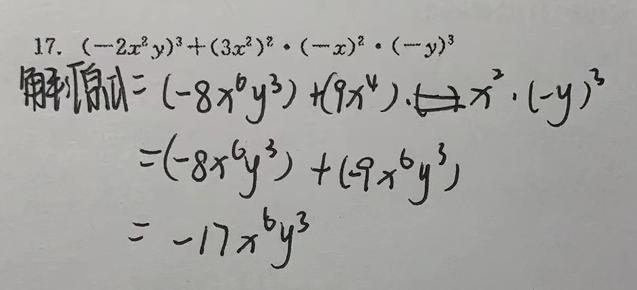 17. (-2x²y)³+(3x²)²·(-x)²·(-y)³
解:原式=(-8x⁶y³)+(9x⁴)·x²·(-y)³
=(-8x⁶y³)+(-9x⁶y³)
=-17x⁶y³